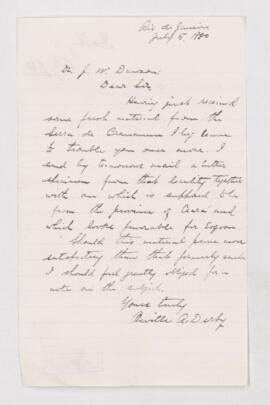 Rio de Janeiro
July 5, 1880
Dr. J. W. Dawson
Dear Sir,
Having just received
some fresh material from the
Serra de I beg leave
to trouble you once more. I
send by tomorrows mail a better
specimen from that locality together
with one which is supposed to be
from the province of Ceara and
which looks favorable for Eozoon.
Should this material prove more
satisfactory than that formerly sent
I should feel greatly obliged for a
note on the subject.
Yours truly
Orville A. Derby